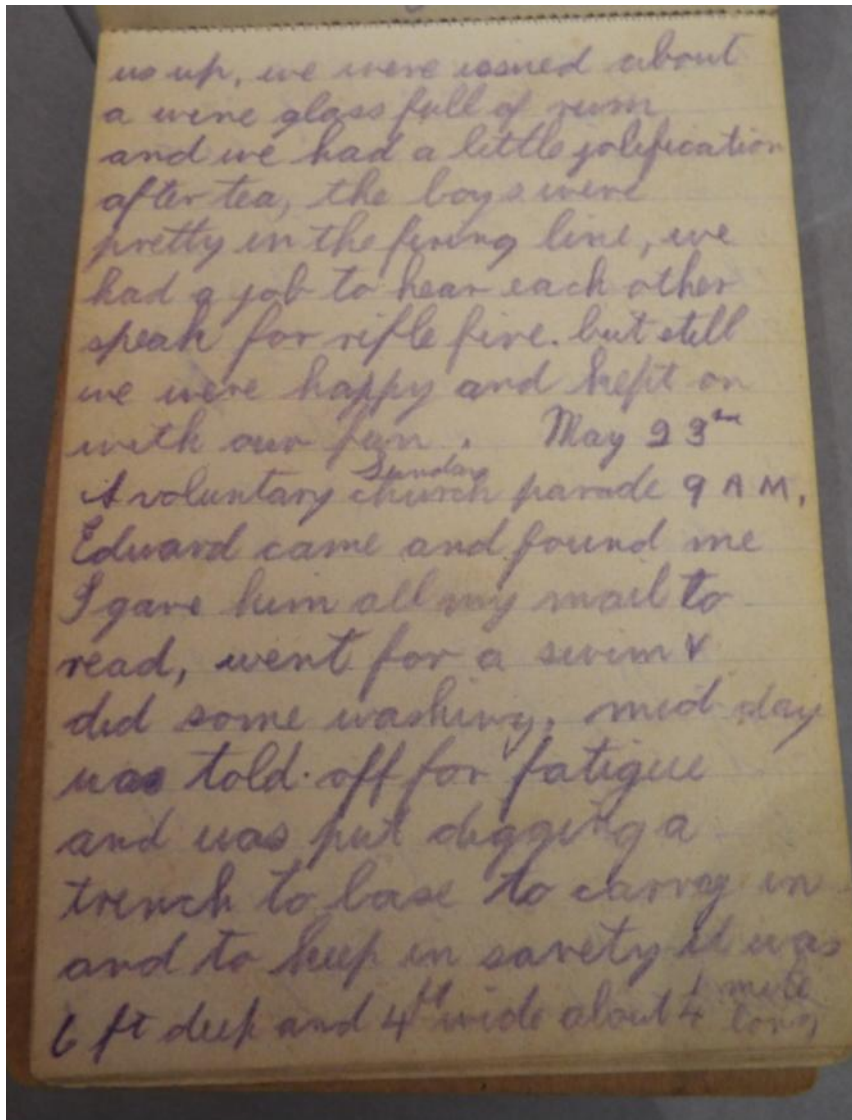 us up, we were issued about
a wine glass full of rum
and we had a little jolification
after tea, the boys were
pretty in the firing line, we
had a job to hear each other
speak for rifle fire. but still
we were happy and kept on
with our fun. May 23
Sunday
A voluntary church parade 9 AM,
Edward came and found me
I gave him all my mail to
read, went for a swim &
did some washing, mid day
was told off for fatigue
and was put digging a
trench to base to carry in
and to keep in savety it was
6 ft deep and 4 ft wide about 1/4 mile
long